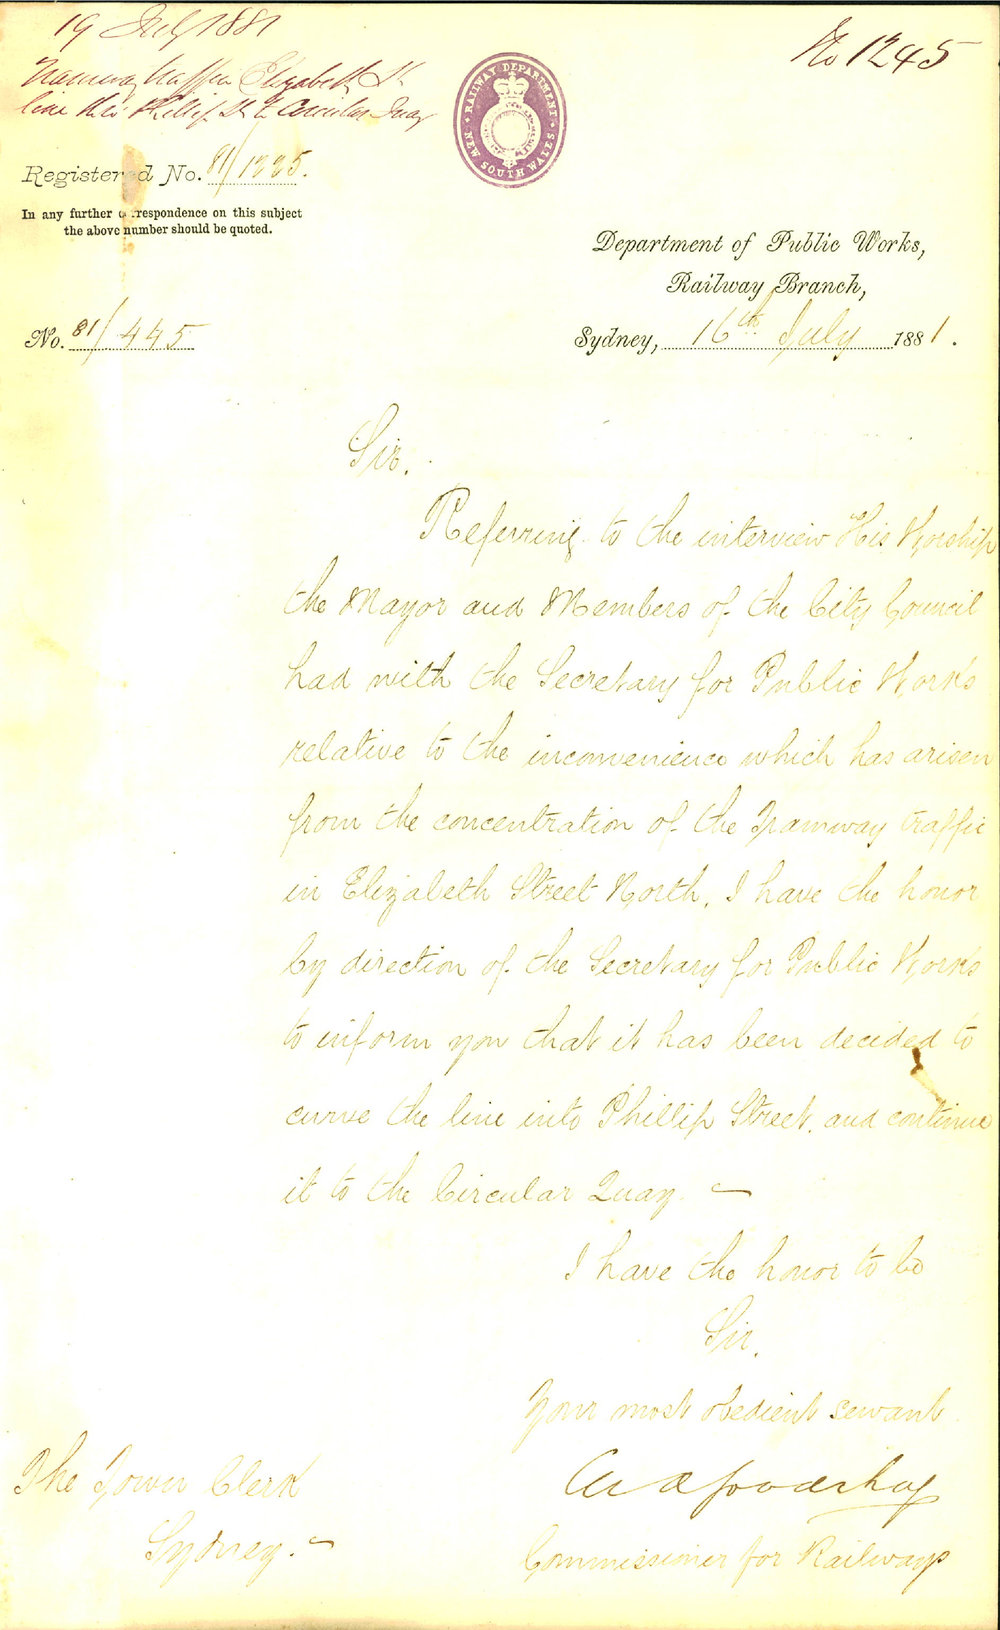 19 July 1881
No 1245
Tramway traffic Elizabeth St
line thro Phillip St to Circular Quay
RAILWAY DEPARTMENT
NEW SOUTH WALES
Registered No. 81/1225.
In any further correspondence on this subject
the above number should be quoted.
Department of Public Works,
Railway Branch,
No. 81/445
Sydney, 16th July 1881.
Sir.
Referring to the interview His Worship
the Mayor and Members of the City Council
had with the Secretary for Public Works
relative to the inconvenience which has arisen
from the concentration of the Tramway traffic
in Elizabeth Street North, I have the honor
by direction of the Secretary for Public Works
to inform you that it has been decided to
curve the line into Phillip Street, and continue
it to the Circular Quay. —
I have the honor to be
Sir.
Your most obedient servant
Commissioner for Railways
The Town Clerk
Sydney. —